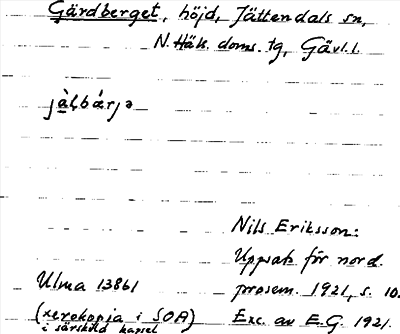 Gärdberget, höjd, Jättendals sn,
N. Häls. doms. tg, Gävl. l.
jàḷbárjə
Nils Eriksson:
Uppsats för nord.
Ulma 13861 prosem. 1921, s. 10.
(xerokopia i SOA) Exc. av E.G. 1921.
i särskild kapsel